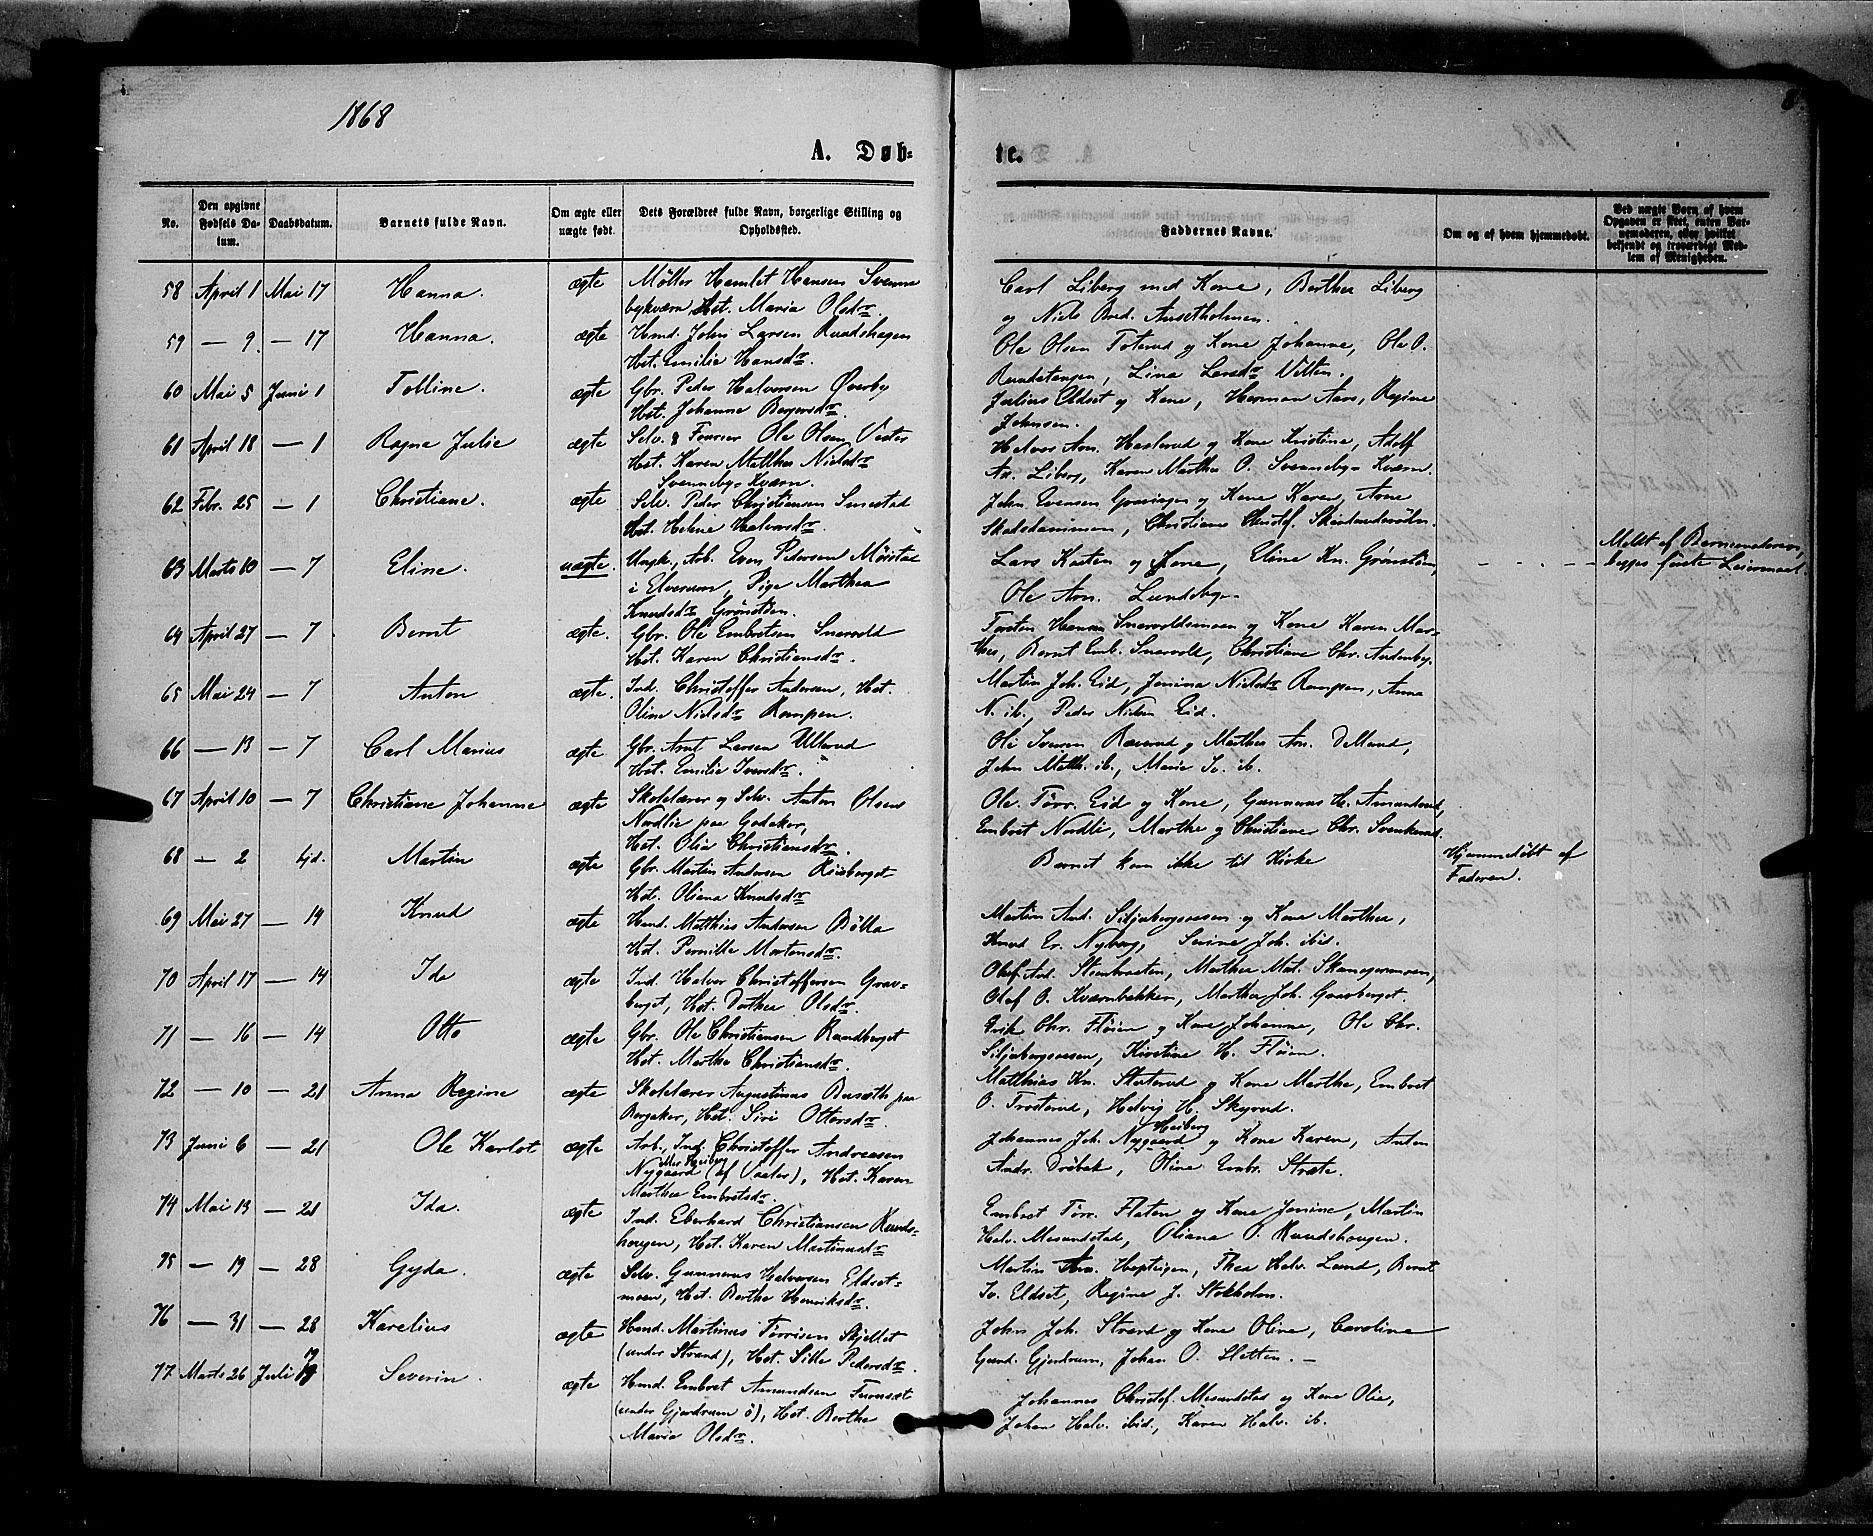 1868
8
A. Døb-
te.
No.
Den opgivne Fødsels Datum.
Daabsdatum.
Barnets fulde Navn.
Om ægte eller uægte født.
Dets Forældres fulde Navn, borgerlige Stilling og Opholdssted.
Faddernes Navne.
Om og af hvem hjemmedøbt.
Ved uægte Børn af hvem Opgaven er skeet, enten Barnemoderen, eller hvilket bekjendt og troværdigt Medlem af Menigheden.
58 April 1 Mai 17 Hanna. ægte Møller Hamlet Hansen Svenne
bykværn, Hst. Maria Olsdr.
Carl Liberg med Kone, Berthea Liberg
og Niels Bred. Ansetholmen.
59 — 9. — 17 Hanna. ægte Hmd. John Larsen Rundshagen
Hst. Emilie Hansdr.
Ole Olsen Toterud og Kone Johanne, Ole O.
Rundstangen, Lina Larsdr Vilten.
60 Mai 5 Juni 1 Tolline. ægte Gbr. Peder Halvorsen Øverby
Hst. Johanne Bergersdr.
Julius Eldset og Kone, Herman Aars, Regine
Johnsen.
61 April 18 — 1 Ragna Julie ægte Selv. & Fourier Ole Olsen Vester
Hst. Karen Malthea Nielsdr
Svenneby-Kværn.
Halvor Arn. Haslerud og Kone Kristine, Adolf
An. Liberg, Karen Marthea O. Svenneby-Kværn.
62 Febr. 25 — 1 Christiane. ægte Selv. Peder Christiansen Smestad
Hst. Helene Halvorsdr.
John Evensen Gransingen og Kone Karen, Arne
Skadsdammen, Christiane Christof.
63 Marts 10 — 7 Eline. uægte. Ungk., Arb. Even Pedersen Mørstad
i Elverum, Pige Marthea
Knudsdr Grønsten.
Lars Kasten og Kone, Eline Kn. Grønsten,
Ole Arn. Lundeby.
Meldt af Barnemoderen,
begges første Leiermaal.
64 April 27 — 7 Bernt ægte. Gbr. Ole Embretsen Snarvold
Hst. Karen Christiansdr.
Torsten Hansen Snarvoldsmoen og Kone Karen Mar-
thea, Bernt Emb. Snarvold, Christiane Chr. Andenby.
65 Mai 24 — 7 Anton ægte. Ind. Christoffer Andersen, Hst.
Oline Nielsdr Rampen.
Martin Joh. Eid, Jenina Nielsdr Rampen, Anna
N. ib., Peder Nielsen Eid.
66 — 13 — 7 Carl Marius ægte Gbr. Arnt Larsen Ullerud
Hst. Emilie Iversdr.
Ole Iversen Ræverud og Marthea Arn. Delland,
John Matth. ib., Marie Iv. ib.
67 April 10 — 7 Christiane Johanne ægte Skolelærer og Selv. Anton Olsen
Nordlie paa Godaker,
Hst. Olea Christiansdr.
Ole Törr. Eid og Kone, Gunnerus H. Amundrud,
Embret Nordli, Marthe og Christiane Chr. Svenkerud.
68 — 2 hjd. Martin ægte Gbr. Martin Andersen Risberget
Hst. Oliana Knudsdr
Barnet kom ikke til Kirke
Hjemmedøbt af
Faderen.
69 Mai 27 — 14 Knud ægte Hmd. Matthias Andersen Bölla
Hst. Pernille Mortensdr.
Martin And. Siljubergsveen og Kone Marthea,
Knud Er. Nyberg, Serine Joh. ibid.
70 April 17 — 14 Ida ægte Ind. Halvor Christoffersen Grav-
berget, Hst. Dorthea Olsdr.
Olaf And. Stenbraaten, Marthea Mat. Skamgeremoen,
Olaf O. Kværnbekken, Marthea Joh. Gravberget.
71 — 16 — 14 Otto ægte Gbr. Ole Christiansen Rundberget
Hst. Marthea Christiansdr.
Erik Chr. Fløien og Kone Johanne, Ole Chr.
Siljubergsveen, Kirstine H. Fløien.
72 — 10 — 21 Anna Regine ægte Skolelærer Augustinus Buseth paa
Bergaker, Hst. Siri Ottersdr.
Matthias Kn. Skaterud og Kone Marthe, Embret
O. Trosterud, Hedvig H. Skyrud.
73 Juni 6 — 21 Ole Karlot ægte Arb., Ind. Christoffer Andreasen
Nygaard eller Heiberg (af Vaaler), Hst. Karen
Marthea Embretsdr.
Johannes Joh. Nygaard Heiberg og Kone Karen, Anton
Andr. Drøbak, Oline Embr. Stræte.
74 Mai 13 — 21 Ida. ægte Ind. Eberhard Christiansen Runds-
hougen, Hst. Karen Martinusdr
Embret Törr. Flaten og Kone Jenine, Martin
Halv. Mesundstad, Oliana O. Rundshougen.
75 — 19 — 28 Gyda. ægte Selv. Gunnerus Halvorsen Eldset-
moen, Hst. Berthe Henriksdr.
Martin Arn. Heptigen, Thea Halv. Lund, Bernt
Iv. Eldset, Regine J. Stokholm.
76 — 31 — 28 Karelius ægte Hmd. Martinus Törrisen Skjellet
(under Strand), Hst. Sille Pedersdr.
John Joh. Strand og Kone Oline, Caroline
Gund. Gjerdrum, Johan O. Sletten. —
77 Marts 26 Juli Severin. ægte Hmd. Embret Amundsen Furuset
(under Gjerdrum ö), Hst. Berthe
Maria Olsdr.
Johannes Christof. Mesundstad og Kone Olea,
Johan Halv. ibid., Karen Halv. ib.